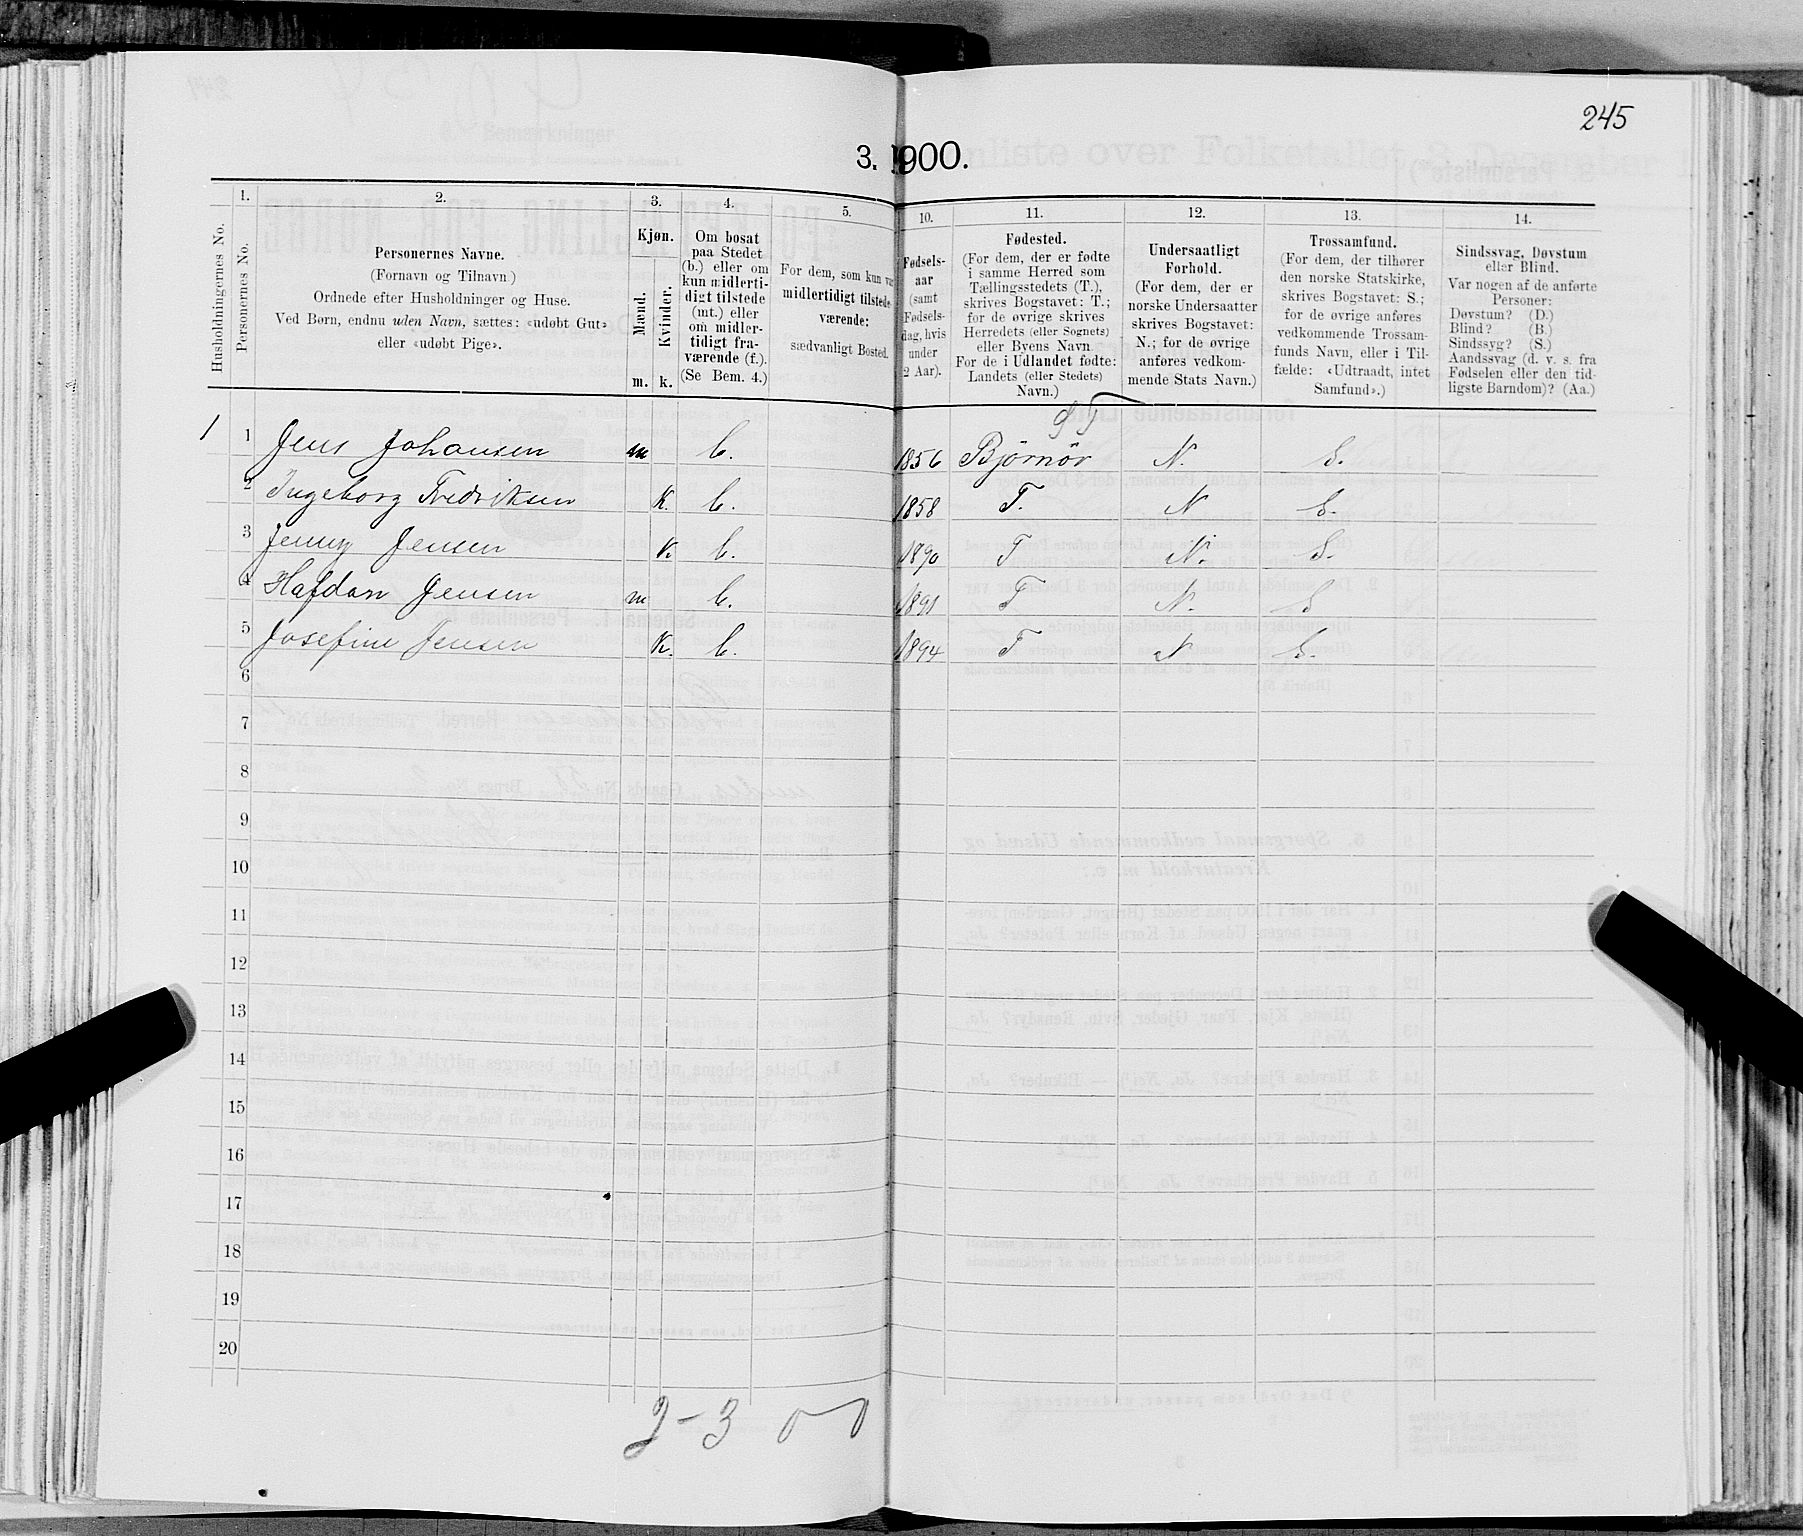 245
3. 1900.
1. 2. 3. 4. 5. 10. 11. 12. 13. 14.
Husholdningernes No.
Personernes No.
Personernes Navne.
(Fornavn og Tilnavn)
Ordnede efter Husholdninger og Huse.
Ved Børn, endnu uden Navn, sættes: «udøbt Gut»
eller «udøbt Pige».
Kjøn.
Mænd.
Kvinder.
m. k.
Om bosat
paa Stedet
(b.) eller om
kun midlerti-
digt tilstede
(mt.) eller
om midler-
tidigt fra-
værende (f.).
(Se Bem. 4.)
For dem, som kun var
midlertidigt tilstede-
værende:
sædvanligt Bosted.
Fødsels-
aar
(samt
Fødsels-
dag, hvis
under
2 Aar).
Fødested.
(For dem, der er fødte
i samme Herred som
Tællingsstedets (T.),
skrives Bogstavet: T.;
for de øvrige skrives
Herredets (eller Sognets)
eller Byens Navn.
For de i Udlandet fødte:
Landets (eller Stedets)
Navn.)
Undersaatligt
Forhold.
(For dem, der er
norske Undersaatter
skrives Bogstavet:
N.; for de øvrige
anføres vedkom-
mende Stats Navn.)
Trossamfund.
(For dem, der tilhører
den norske Statskirke,
skrives Bogstavet: S.;
for de øvrige anføres
vedkommende Trossam-
funds Navn, eller i Til-
fælde: «Udtraadt, intet
Samfund».)
Sindssvag, Døvstum
eller Blind.
Var nogen af de anførte
Personer:
Døvstum? (D.)
Blind? (B.)
Sindssyg? (S.)
Aandssvag (d. v. s. fra
Fødselen eller den tid-
ligste Barndom)? (Aa.)
1 1 Jens Johansen m b. 1856 Bjørnör N. S.
2 Ingeborg Fredriksen K. b. 1858 T. N S.
3 Jenny Jensen K. b. 1890 T N. S.
4 Hafdan Jensen m b. 1891 T N. S
5 Josefine Jensen K. b. 1894 T N S.
6
7
8
9
10
11
12
13
14
15
16
17
18
19
20
2-3 0-0